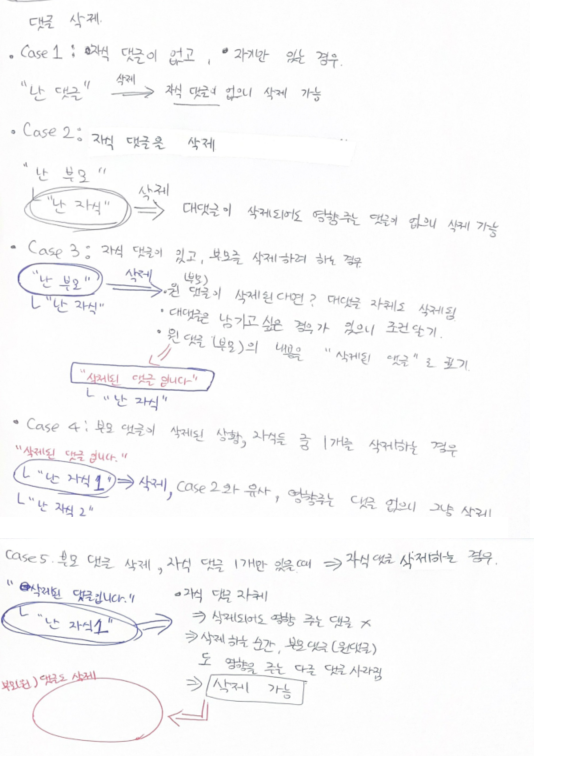 댓글 삭제.
• Case 1 : 자식 댓글이 없고, • 자기만 있는 경우.
"난 댓글" 삭제 → 자식 댓글이 없으니 삭제 가능
• Case 2: 자식 댓글을 삭제
"난 부모"
ㄴ "난 자식" 삭제 ⇒ 대댓글이 삭제되어도 영향주는 댓글이 없으니 삭제 가능
• Case 3 : 자식 댓글이 있고, 부모를 삭제하려 하는 경우
"난 부모" 삭제 ⇒
ㄴ "난 자식"
(부모)
• 원 댓글이 삭제된다면? 대댓글 자체도 삭제됨
• 대댓글은 남기고 싶은 경우가 있으니 조건 달기.
• 원 댓글 (부모)의 내용을 "삭제된 댓글"로 표기.
"삭제된 댓글입니다"
ㄴ "난 자식"
• Case 4 : 부모 댓글이 삭제된 상황, 자식들 중 1개를 삭제하는 경우
"삭제된 댓글입니다."
ㄴ "난 자식1" ⇒ 삭제, Case 2와 유사, 영향주는 댓글 없으니 그냥 삭제
ㄴ "난 자식2"
Case 5. 부모 댓글 삭제, 자식 댓글 1개만 있을 때 ⇒ 자식 댓글 삭제하는 경우.
"삭제된 댓글입니다."
ㄴ "난 자식1" ⇒
• 자식 댓글 자체
⇒ 삭제되어도 영향 주는 댓글 x
⇒ 삭제하는 순간, 부모댓글(원댓글)
도 영향을 주는 댓글 사라짐
⇒ 삭제 가능
부모(원) 댓글도 삭제